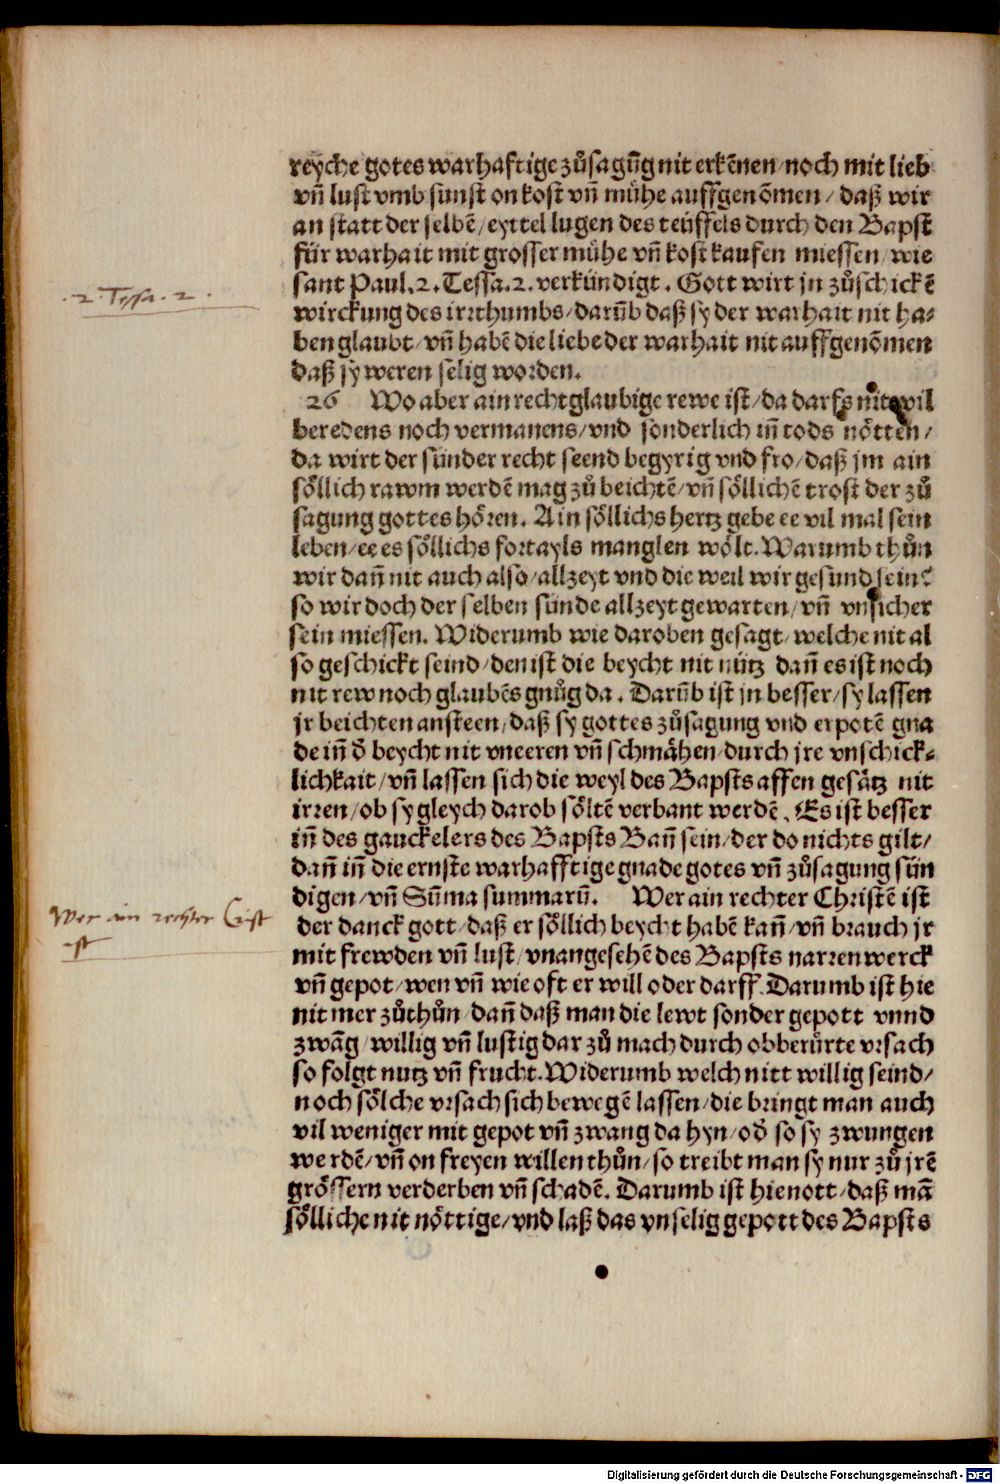 reyche gotes warhaftige zůsagūg nit erkēnen / noch mit lieb
vn̄ lust vmb sunst on kost vn̄ mühe auffgenōmen / daß wir
an statt der selbē / eyttel lugen des teüffels durch den Bapst
für warhait mit grosser mühe vn̄ kost kaufen miessen / wie
.2. Tessa. 2.
sant Paul. 2. Tessa. 2. verkündigt. Gott wirt jn zůschickē
wirckung des irrthumbs / darūb daß sy der warhait nit ha⸗
ben glaubt / vn̄ habē die liebe der warhait nit auffgenōmen
daß sy weren selig worden.
26 Wo aber ain rechtglaubige rewe ist / da darfs nit vil
beredens noch vermanens / vnd sonderlich in̄ tods nötten /
da wirt der sünder recht seend begyrig vnd fro / daß jm ain
söllich rawm werdē mag zů beichtē / vn̄ söllichē trost der zů
sagung gottes hören. Ain söllichs hertz gebe ee vil mal sein
leben / ee es söllichs fortayls manglen wölt. Warumb thůn
wir dan̄ nit auch also / allzeyt vnd die weil wir gesund sein?
so wir doch der selben sünde allzeyt gewarten / vn̄ vnsicher
sein miessen. Widerumb wie daroben gesagt / welche nit al
so geschickt seind / den ist die beycht nit nütz dan̄ es ist noch
nit rew noch glaubēs gnůg da. Darūb ist jn besser / sy lassen
jr beichten ansteen / daß sy gottes zůsagung vnd erpotē gna
de in̄ d̄ beycht nit vneeren vn̄ schmähen / durch jre vnschick⸗
lichkait / vn̄ lassen sich die weyl des Bapsts affen gesätz nit
irren / ob sy gleych darob söltē verbant werdē. Es ist besser
in̄ des gauckelers des Bapsts Ban̄ sein / der do nichts gilt /
dan̄ in̄ die ernste warhafftige gnade gotes vn̄ zůsagung sün
digen / vn̄ Sūma summarū. Wer ain rechter Christē ist
Wer ain rechter Crist
ist
der danck gott / daß er söllich beycht habē kan̄ / vn̄ brauch jr
mit frewden vn̄ lust / vnangesehē des Bapsts narrenwerck
vn̄ gepot / wen vn̄ wie oft er will oder darff. Darumb ist hie
nit mer zůthůn / dan̄ daß man die lewt sonder gepott vnnd
zwāg / willig vn̄ lustig dar zů mach durch obberürte vrsach
so folgt nutz vn̄ frucht. Widerumb welch nitt willig seind /
noch sölche vrsach sich bewegē lassen / die bringt man auch
vil weniger mit gepot vn̄ zwang da hyn / od̄ so sy zwungen
werdē / vn̄ on freyen willen thůn / so treibt man sy nur zů jrē
grössern verderben vn̄ schadē. Darumb ist hie nott / daß mā
sölliche nit nöttige / vnd laß das vnselig gepott des Bapsts
Digitalisierung gefördert durch die Deutsche Forschungsgemeinschaft - DFG